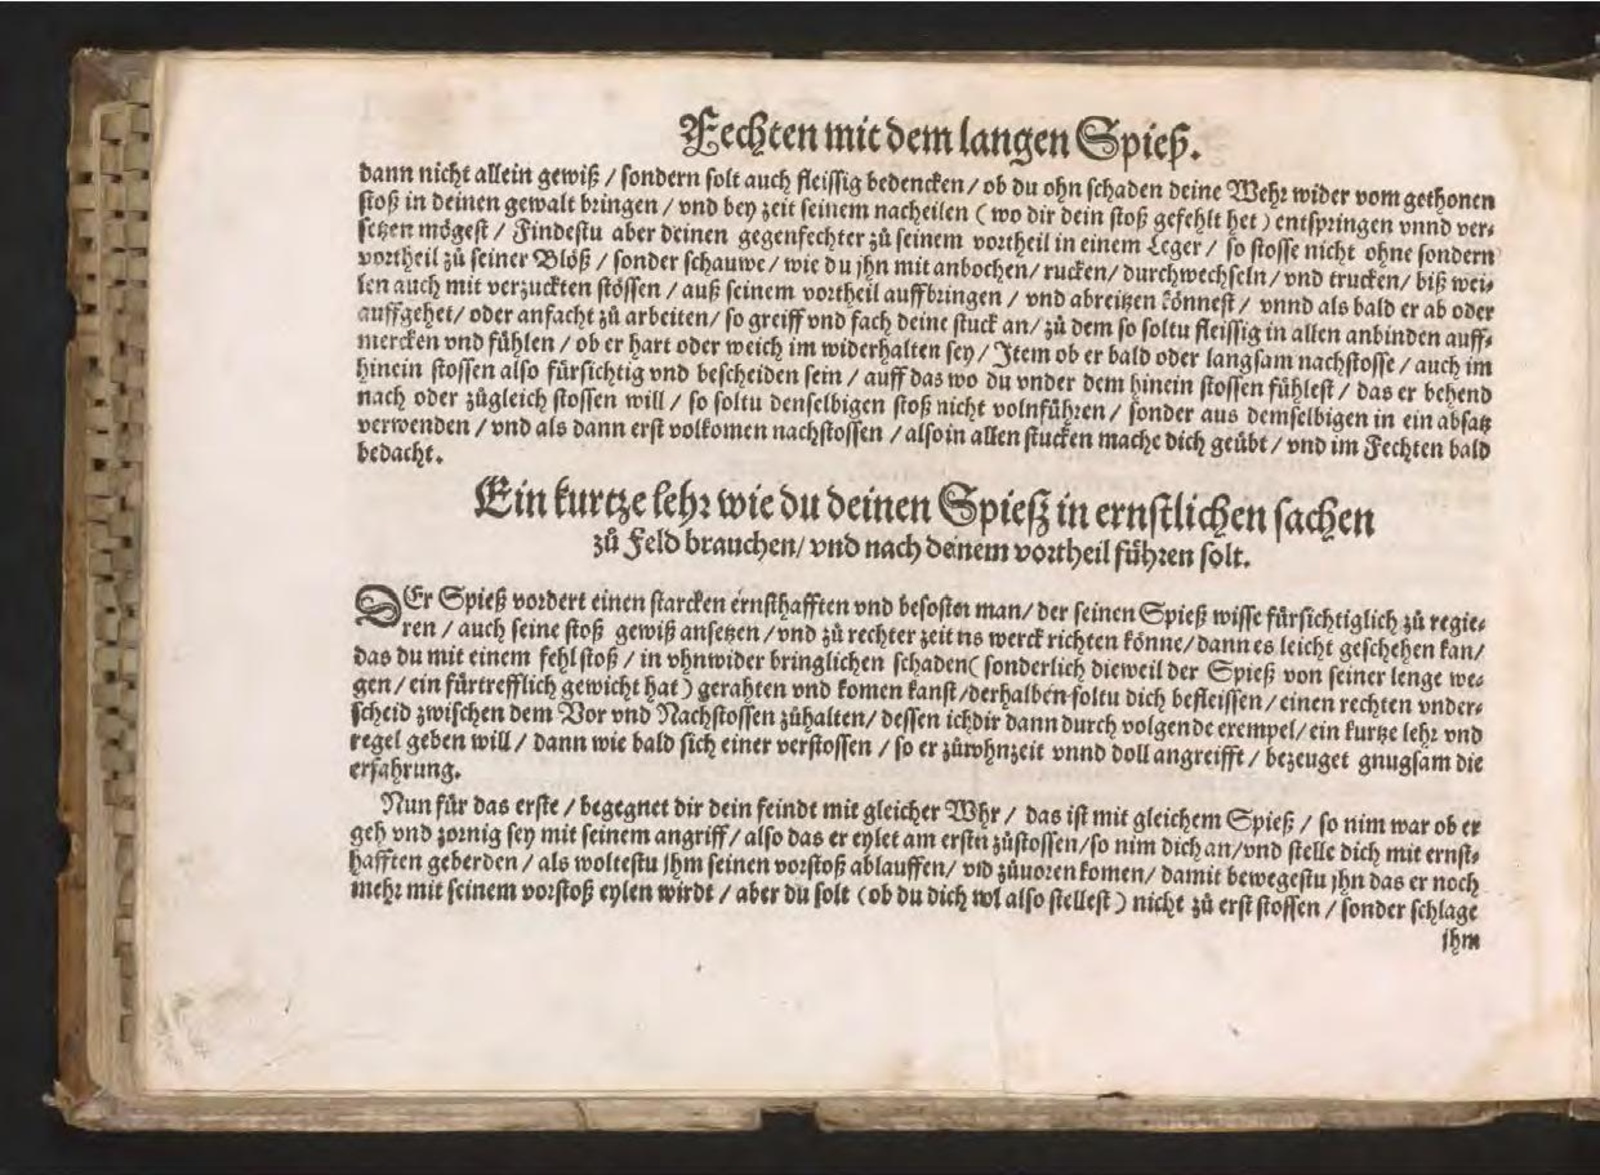 Fechten mit dem langen Spieß.
dann nicht allein gewiß / sondern solt auch fleissig bedencken / ob du ohn schaden deine Wehr wider vom gethonen
stoß in deinen gewalt bringen / vnd bey zeit seinem nacheilen ( wo dir dein stoß gefehlt het ) entspringen vnnd ver⸗
setzen mögest / Findestu aber deinen gegenfechter zů seinem vortheil in einem Leger / so stosse nicht ohne sondern
vortheil zů seiner Blöß / sonder schauwe / wie du jhn mit anbochen / rucken / durchwechseln / vnd trucken / biß wei⸗
len auch mit verzuckten stössen / auß seinem vortheil auffbringen / vnd abreitzen könnest / vnnd als bald er ab oder
auffgehet / oder anfacht zů arbeiten / so greiff vnd fach deine stuck an / zů dem so soltu fleissig in allen anbinden auff⸗
mercken vnd fühlen / ob er hart oder weich im widerhalten sey / Item ob er bald oder langsam nachstosse / auch im
hinein stossen also fürsichtig vnd bescheiden sein / auff das wo du vnder dem hinein stossen fühlest / das er behend
nach oder zůgleich stossen will / so soltu denselbigen stoß nicht volnführen / sonder aus demselbigen in ein absatz
verwenden / vnd als dann erst volkomen nachstossen / also in allen stucken mache dich geübt / vnd im Fechten bald
bedacht.
Ein kurtze lehr wie du deinen Spiesz in ernstlichen sachen
zů Feld brauchen / vnd nach deinem vortheil führen solt.
DEr Spieß vordert einen starcken ernsthafften vnd besosten man / der seinen Spieß wisse fürsichtiglich zů regie⸗
ren / auch seine stoß gewiß ansetzen / vnd zů rechter zeit ns werck richten könne / dann es leicht geschehen kan /
das du mit einem fehl stoß / in vhnwider bringlichen schaden ( sonderlich dieweil der Spieß von seiner lenge we⸗
gen / ein fürtrefflich gewicht hat ) gerahten vnd komen kanst / derhalben soltu dich befleissen / einen rechten vnder⸗
scheid zwischen dem Vor vnd Nachstossen zůhalten / dessen ich dir dann durch volgende exempel / ein kurtze lehr vnd
regel geben will / dann wie bald sich einer verstossen / so er zůvhnzeit vnnd doll angreifft / bezeuget gnugsam die
erfahrung.
Nun für das erste / begegnet dir dein feindt mit gleicher Whr / das ist mit gleichem Spieß / so nim war ob er
geh vnd zornig sey mit seinem angriff / also das er eylet am erstn zůstossen / so nim dich an / vnd stelle dich mit ernst⸗
hafften geberden / als woltestu jhm seinen vorstoß ablauffen / vnd zůuoren komen / damit bewegestu jhn das er noch
mehr mit seinem vorstoß eylen wirdt / aber du solt ( ob du dich wol also stellest ) nicht zů erst stossen / sonder schlage
jhm